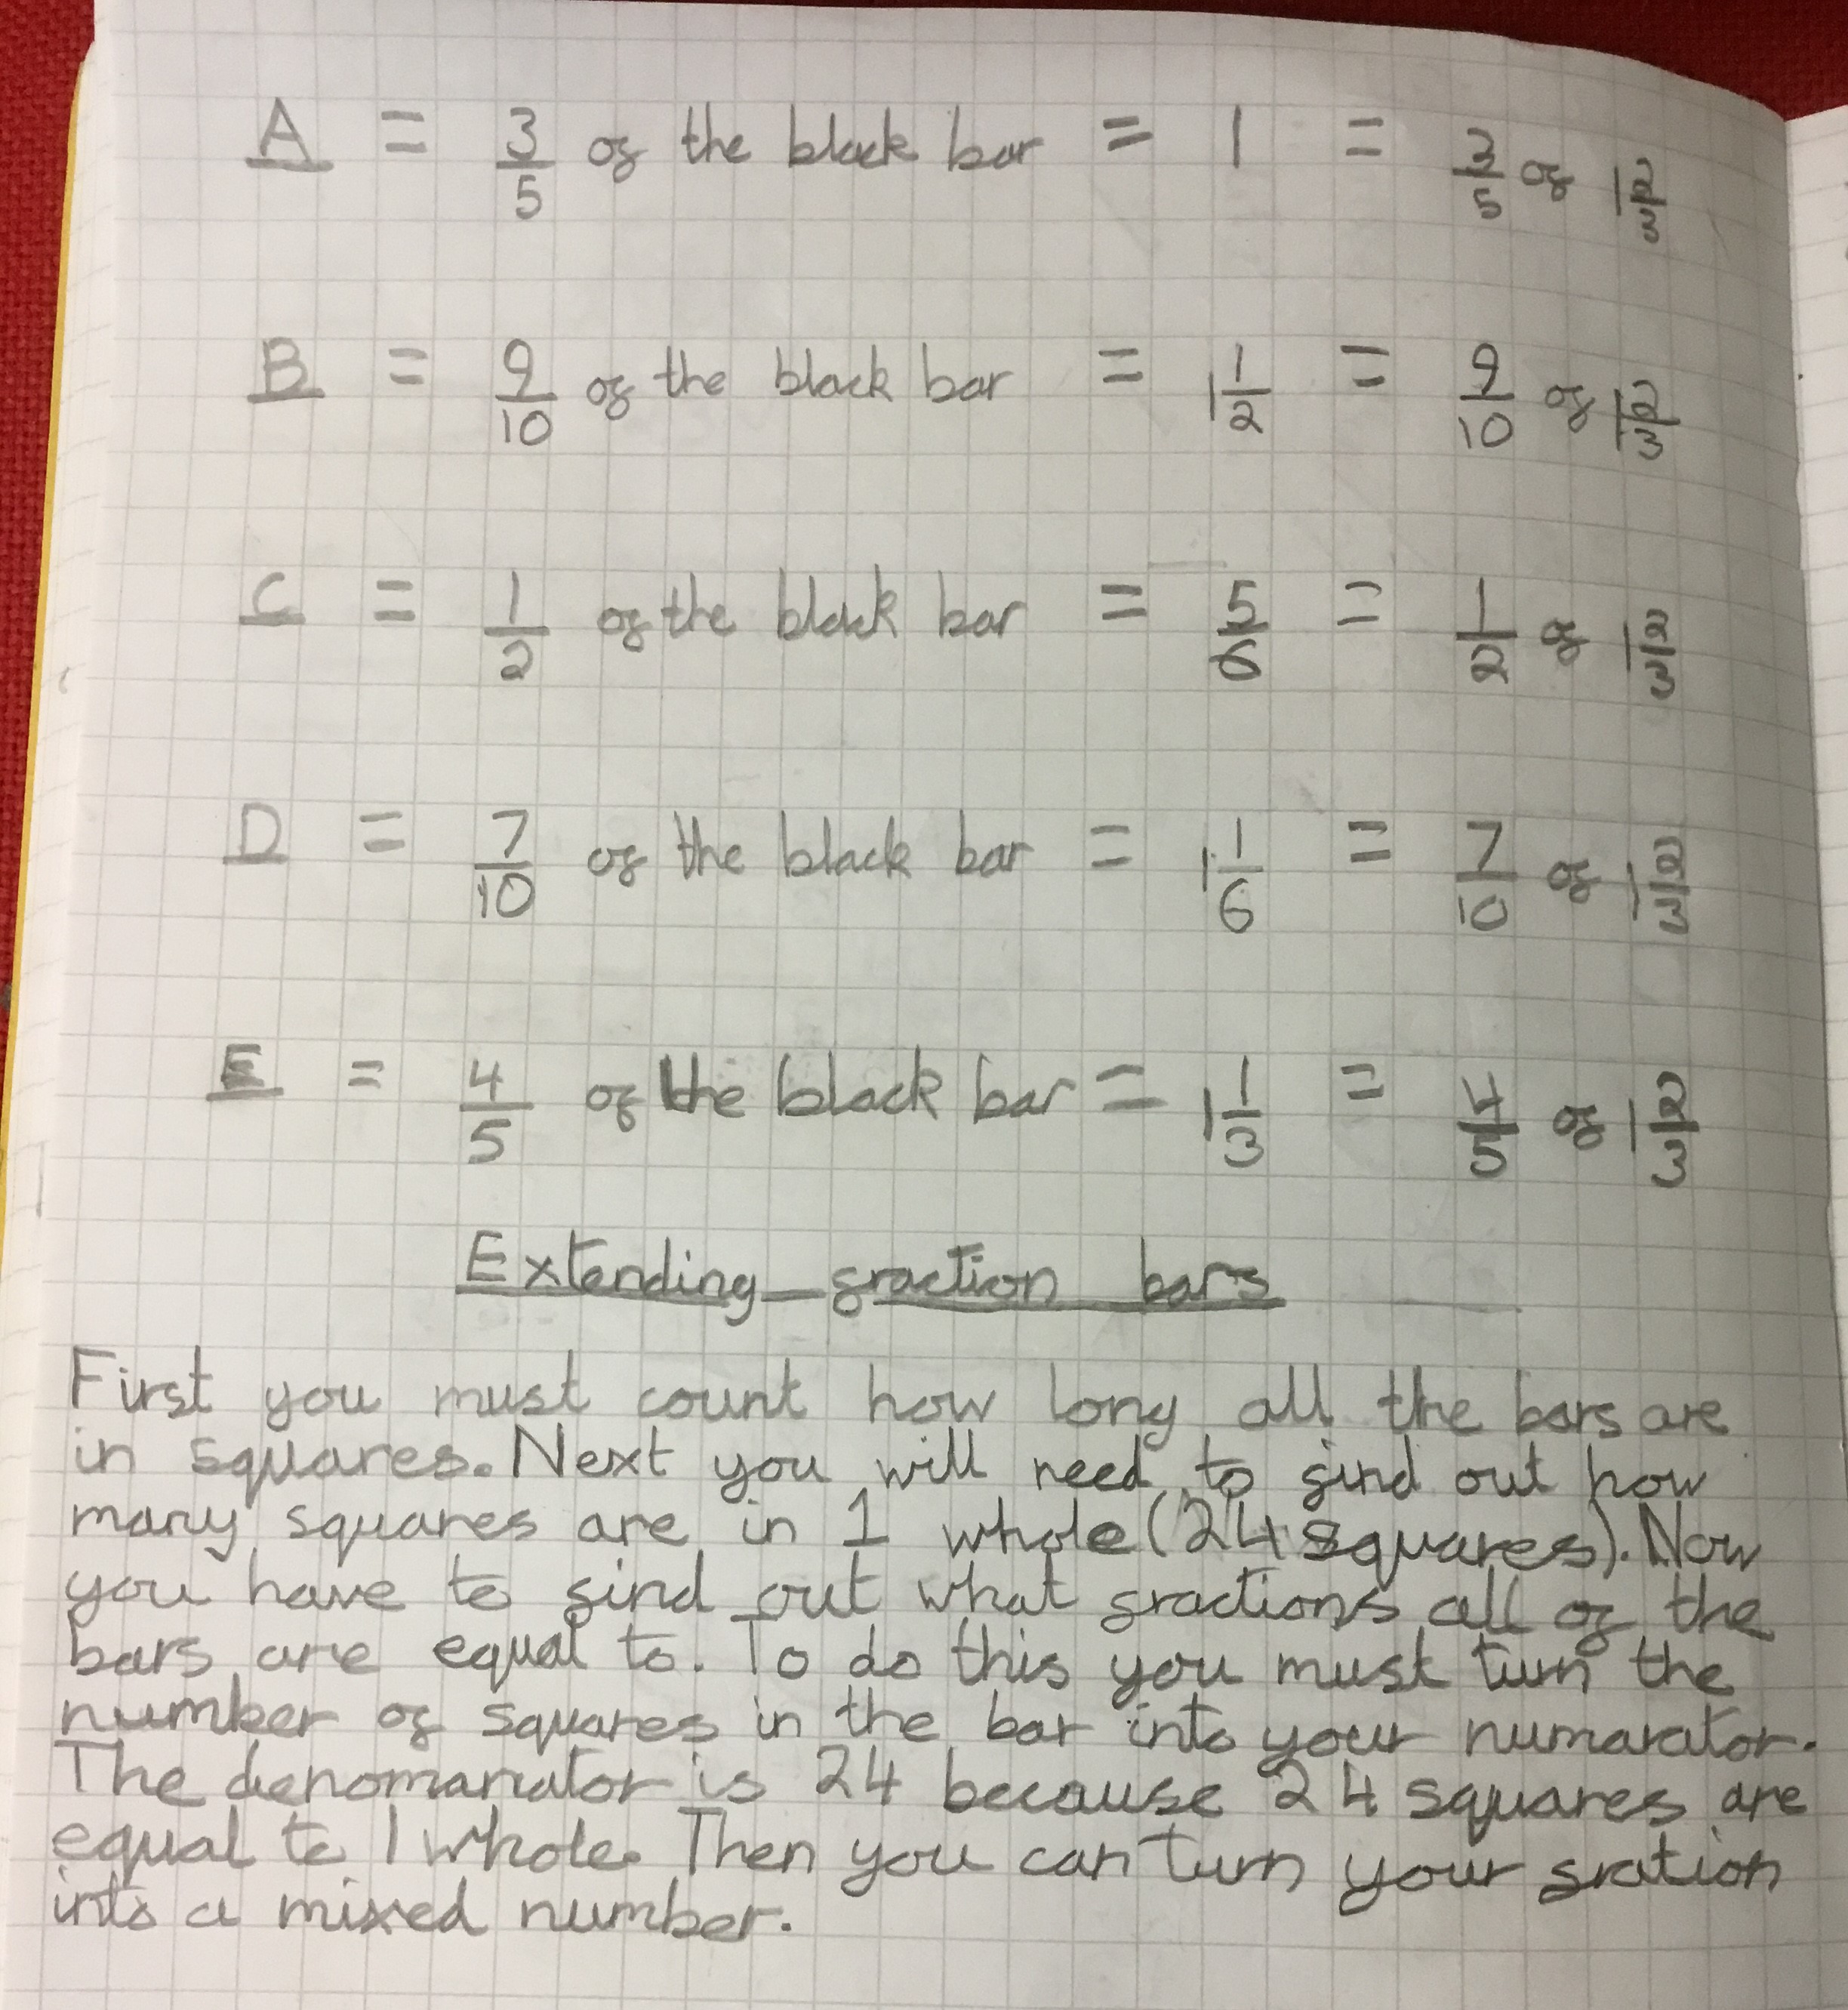 A = 3/5 of the black bar = 1 = 3/5 of 1 2/3
B = 9/10 of the black bar = 1 1/2 = 9/10 of 1 2/3
C = 1/2 of the black bar = 5/6 = 1/2 of 1 2/3
D = 7/10 of the black bar = 1 1/6 = 7/10 of 1 2/3
E = 4/5 of the black bar = 1 1/3 = 4/5 of 1 2/3
Extending fraction bars
First you must count how long all the bars are
in squares. Next you will need to find out how
many squares are in 1 whole (24 squares). Now
you have to find out what fractions all of the
bars are equal to. To do this you must turn the
number of squares in the bar into your numarator.
The denomanator is 24 because 24 squares are
equal to 1 whole. Then you can turn your fration
into a mixed number.